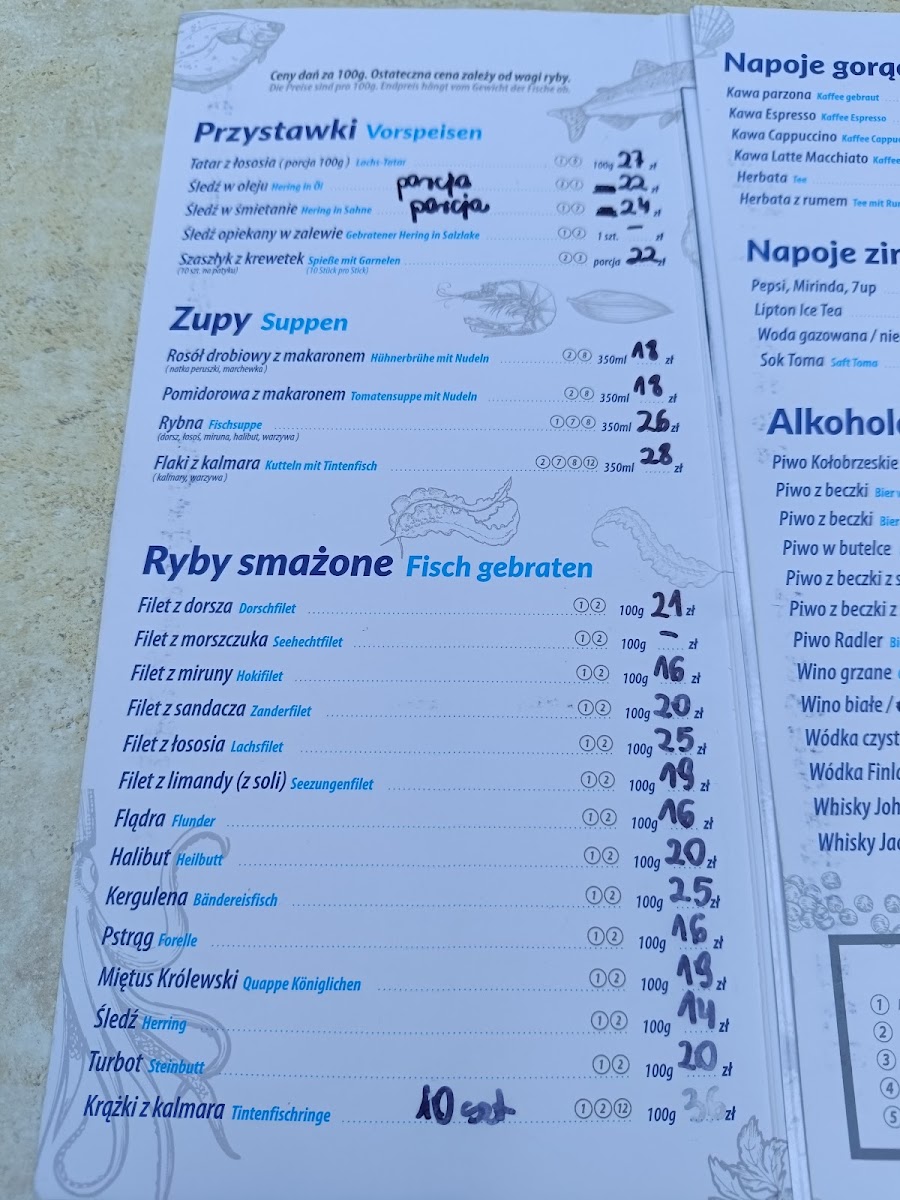 Ceny dań za 100g. Ostateczna cena zależy od wagi ryby.
Die Preise sind pro 100g. Endpreis hängt vom Gewicht der Fische ab.
Przystawki Vorspeisen
Tatar z łososia (porcja 100g) Lachs-Tatar ① 100g 27 zł
Śledź w oleju Hering in Öl porcja 22 zł
Śledź w śmietanie Hering in Sahne porcja 24 zł
Śledź opiekany w zalewie Gebratener Hering in Salzlake 1 szt. – zł
Szaszłyk z krewetek Spieße mit Garnelen porcja 22 zł
(10 szt. na patyku) (10 Stück pro Stick)
Zupy Suppen
Rosół drobiowy z makaronem Hühnerbrühe mit Nudeln ②⑧ 350ml 18 zł
(natka peruszki, marchewka)
Pomidorowa z makaronem Tomatensuppe mit Nudeln ②⑧ 350ml 18 zł
Rybna Fischsuppe ①⑦⑧ 350ml 26 zł
(dorsz, łosoś, miruna, halibut, warzywa)
Flaki z kalmara Kutteln mit Tintenfisch ②⑦⑧⑫ 350ml 28 zł
(kalmary, warzywa)
Ryby smażone Fisch gebraten
Filet z dorsza Dorschfilet ①② 100g 21 zł
Filet z morszczuka Seehechtfilet ①② 100g – zł
Filet z miruny Hokifilet ①② 100g 16 zł
Filet z sandacza Zanderfilet ①② 100g 20 zł
Filet z łososia Lachsfilet ①② 100g 25 zł
Filet z limandy (z soli) Seezungenfilet ①② 100g 19 zł
Flądra Flunder ①② 100g 16 zł
Halibut Heilbutt ①② 100g 20 zł
Kergulena Bändereisfisch ①② 100g 25 zł
Pstrąg Forelle ①② 100g 16 zł
Miętus Królewski Quappe Königlichen ①② 100g 19 zł
Śledź Herring ①② 100g 14 zł
Turbot Steinbutt ①② 100g 20 zł
Krążki z kalmara Tintenfischringe 10 szt ①②⑫ 100g zł
Napoje gorą
Kawa parzona Kaffee gebraut
Kawa Espresso Kaffee Espresso
Kawa Cappuccino Kaffee Cappu
Kawa Latte Macchiato Kaffee
Herbata Tee
Herbata z rumem Tee mit Ru
Napoje zi
Pepsi, Mirinda, 7up
Lipton Ice Tea
Woda gazowana / nie
Sok Toma Saft Toma
Alkohol
Piwo Kołobrzeskie
Piwo z beczki Bier
Piwo z beczki Bier
Piwo w butelce
Piwo z beczki z s
Piwo z beczki z
Piwo Radler Bi
Wino grzane
Wino białe /
Wódka czyst
Wódka Finl
Whisky Joh
Whisky Jac
①
②
③
④
⑤